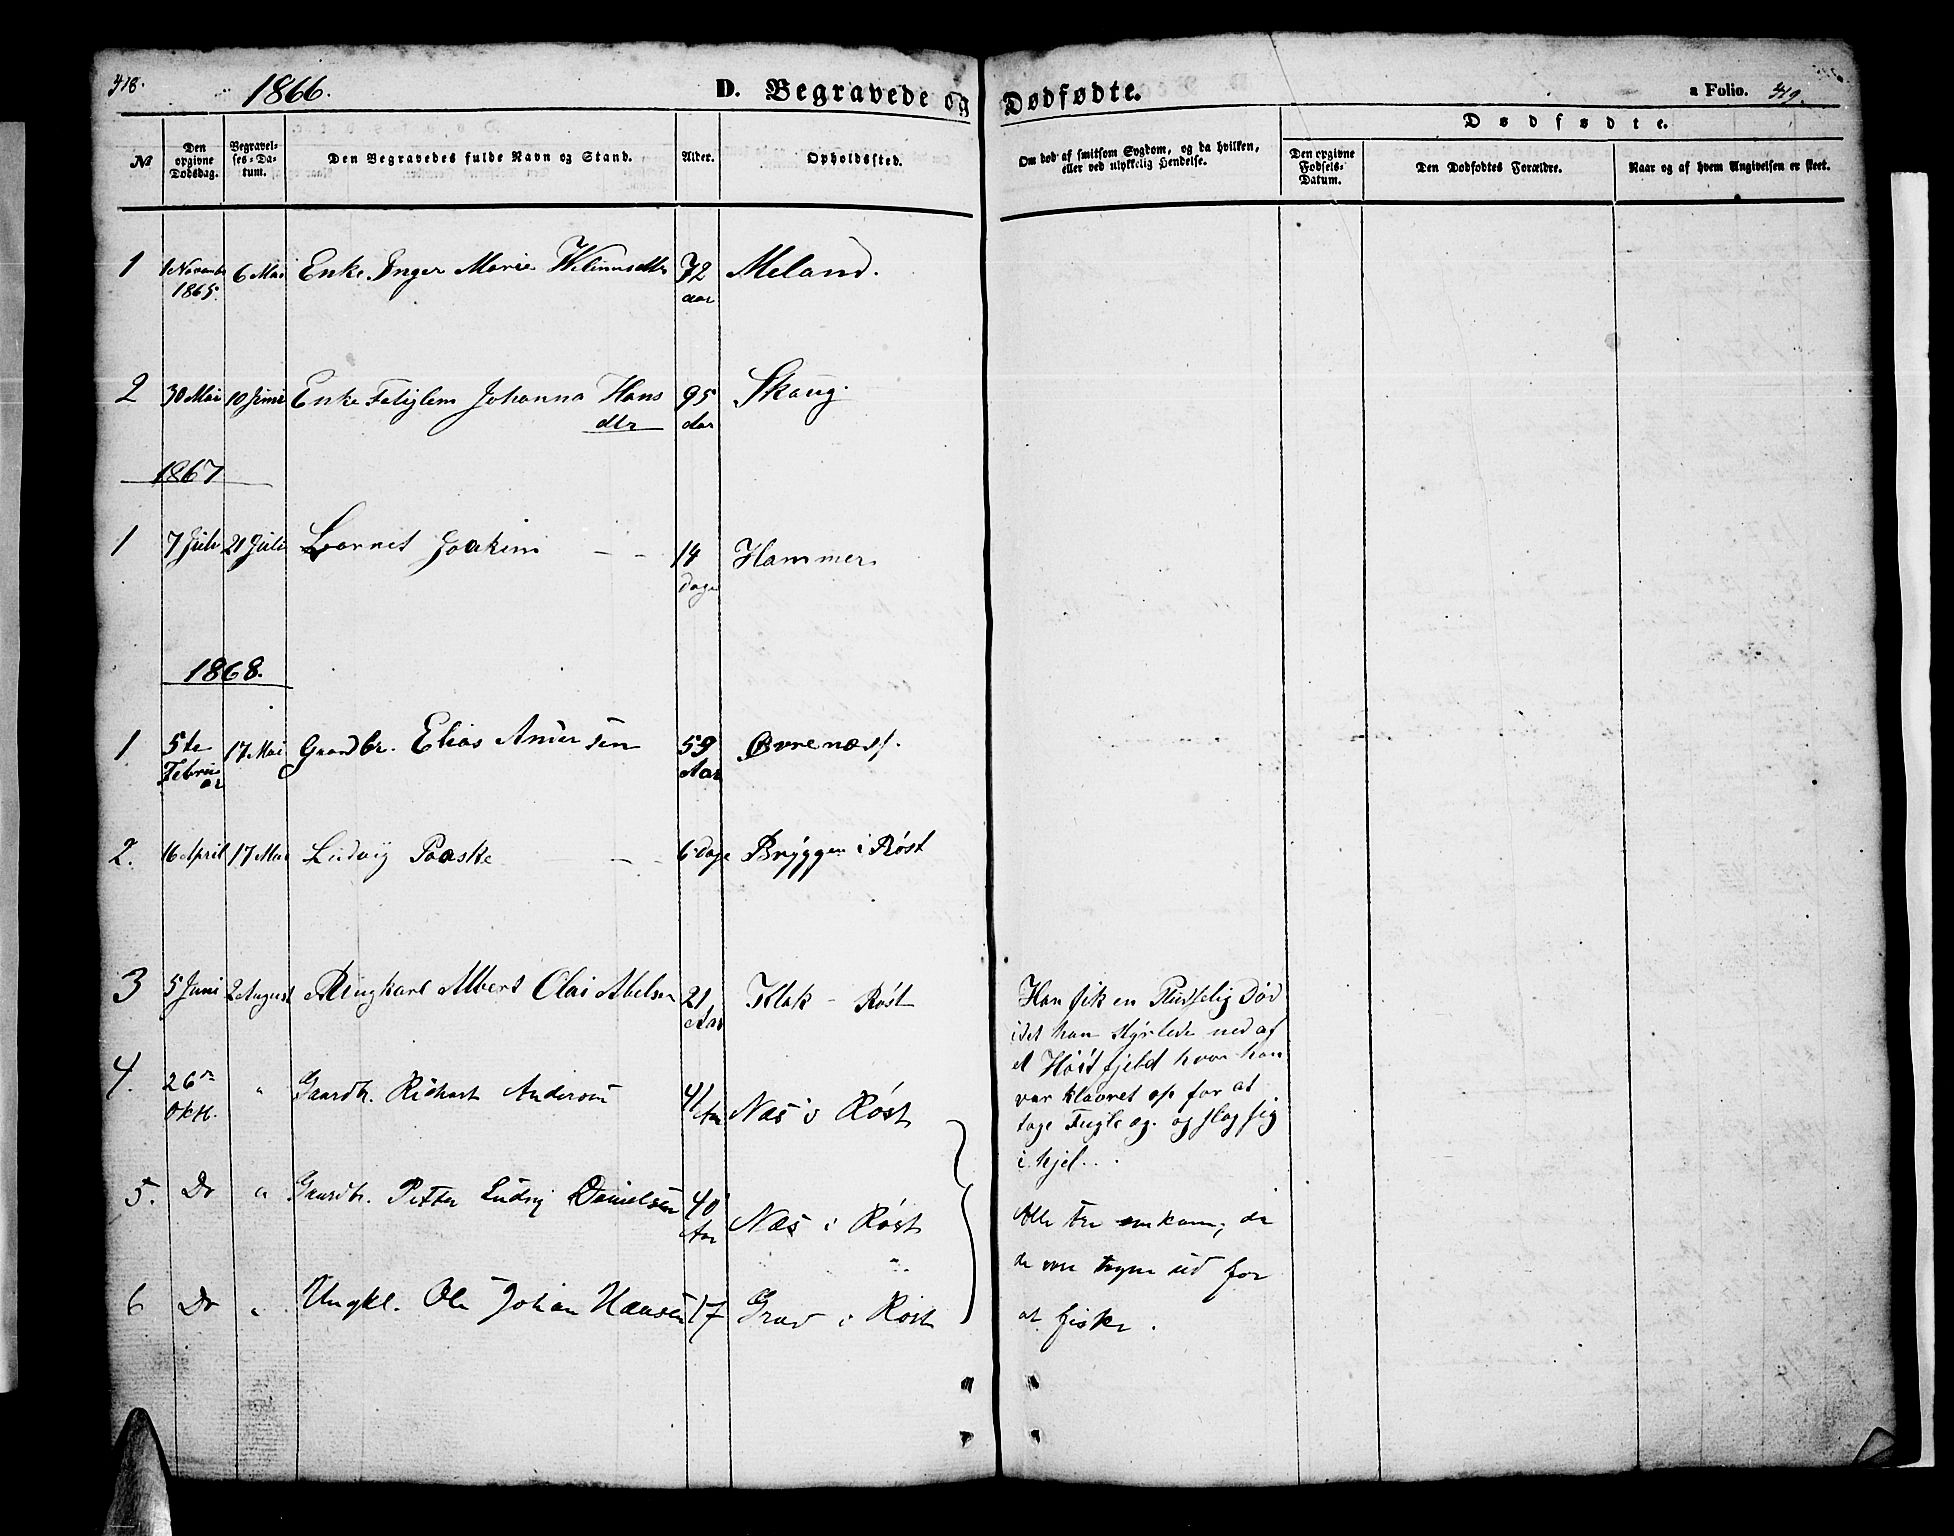 418.
1866.
D. Begravede og Dødfødte.
a Folio. 419.
Dødfødte.
No
Den opgivne Dødsdag.
Begravelses-Datum.
Den Begravedes fulde Navn og Stand.
Alder.
Opholdssted.
Om død af smitsom Sygdom, og da hvilken, eller ved ulykkelig Hendelse.
Den opgivne Fødsels-Datum.
Den Dødfødtes Forældre.
Naar og af hvem Angivelsen er skeet.
1 1 Novembr 6 Mai Enke Inger Marie 72 Meland.
1865. aar
2 30 Mai 10 Juni Enke Johanna Hans 95 Skaug.
dtr aar
1867
1 7 Juli 21 Juli Barnet Joakim - - 14 Hammer
dage
1868.
1 5te 17 Mai Gaardbr. Elias Andersen 59 Øvrenæss.
Februar Aar
2. 16 April 17 Mai Ludvig Paaske - - 6 Dage Bryggen i Røst
3 5 Juni 2 August Ungkarl Albert Olai Abelsen 21 Klak - Røst
Aar
Han fik en Pludselig Død
idet han styrtede ned af
et Høit fjeld hvor han
var klavret op for at
tage Fugle og. og slog sig
ihjel...
4. 26de " Gaardbr. Richart Andersen 41 Næs i Røst
Okt. Aar
5. Do " Gaardbr. Petter Ludvig Danielsen 40 Næs i Røst
Aar
6 Do " Ungkl. Ole Johan Hansen 17 Grav i Røst
Alle tre omkom, da
de vare tagne ud for
at fiske.